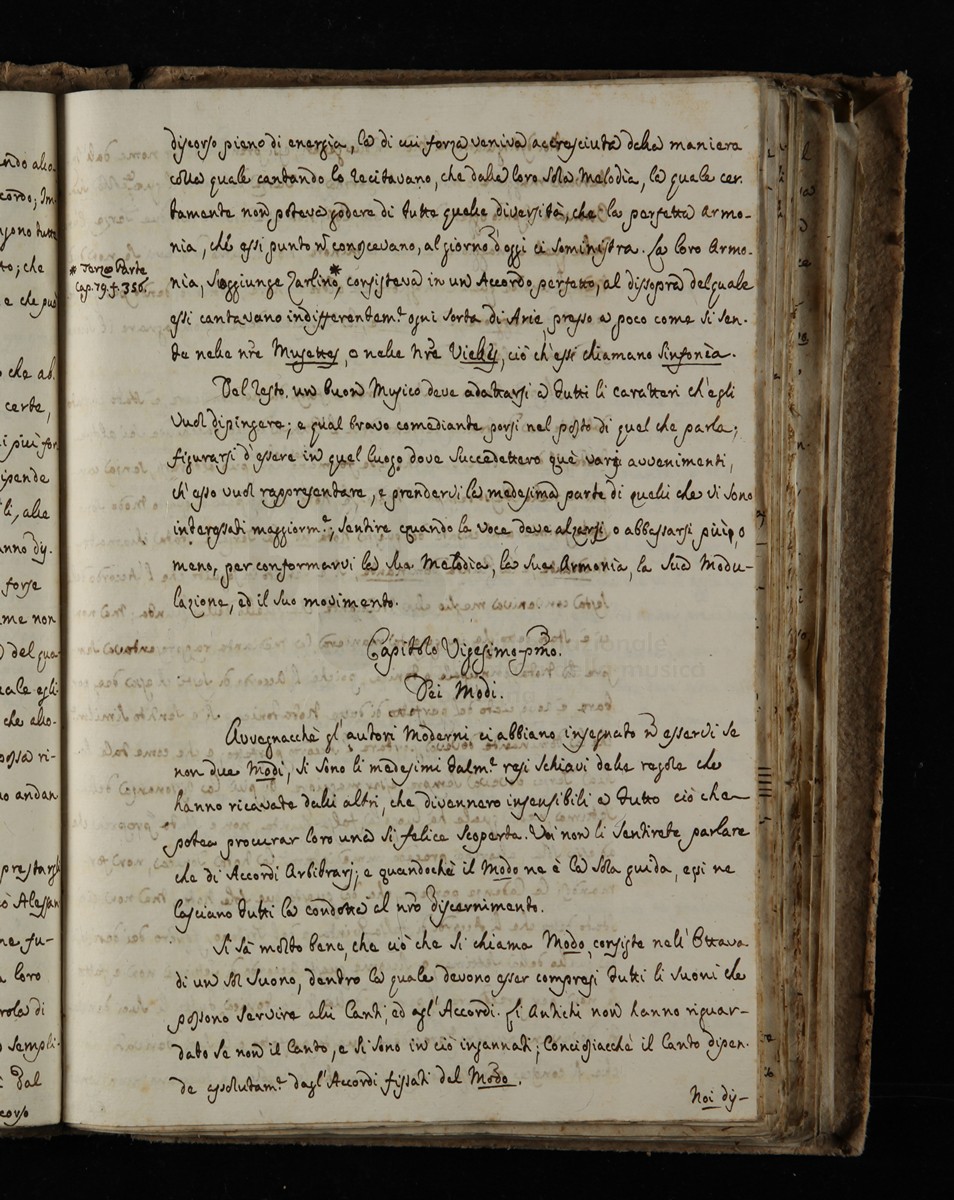 ando alıo
cordo; Im
gono tutti
to; che
e che può
che ab.
certe,
i più for
ipende
li, alle
anno dis.
forse
me non
del qua
uale egli
che allo.
ossa ri-
no andan
prestargli
Alessan
ne fu-
loro
rola di
sempli.
dal
corso
* Terza Parte
Cap. 79. f. 356.
discorso pieno di energia, la di cui forza veniva accresciuta dalla maniera
colla quale cantando lo recitavano, che dalla loro sola Melodia, la quale cer.
tamente non poteva godere di tutte quelle diversità, che la perfetta Armo-
nia, che essi punto ñ conoscevano, al giorno d'oggi ci somministra. La loro Armo-
nia, soggiunge Zarlino*, consisteva in un Accordo perfetto, al dissopra del quale
essi cantavano indifferentemte ogni sorta di Arie presso a poco come si sen-
te nelle nre Musettes, o nelle nre Vielles, ciò ch'essi chiamano Sinfonia.
Del resto un buon Musico deve adattarsi a tutti li caratteri ch'egli
vuol dipingere; e qual bravo comediante porsi nel posto di quel che parla;
figurarsi d'essere in quel luogo dove succedettero que' varj avvenimenti,
ch'esso vuol rappresentare, e prendervi la medesima parte di quelli che vi sono
interessati maggiormte, sentire quando la voce deve alzarsi, o abbassarsi più, o
meno, per conformarvi la sua Melodia, la sua Armonia, la sua Modu-
lazione, ed il suo movimento.
Capitolo Vigesimo-pmo.
Dei Modi.
Avvegnacchè gl'autori Moderni ci abbiano insegnato ñ esservi se
non due Modi, si sono li medesimi talmte resi schiavi delle regole che
hanno ricavate dalli altri, che divennero insensibili a tutto ciò che
potea procurar loro una si felice scoperta. Voi non li sentirete parlare
che di Accordi Arbitrarj; e quandochè il Modo ne è la sola guida, essi ne
lasciano tutti la condotta al nro discernimento.
Si sà molto bene, che ciò che si chiama Modo, consiste nell'Ottava
di un sol suono, dentro la quale devono esser compresi tutti li suoni che
possono servire alli Canti, ed agl'Accordi. Li Antichi non hanno riguar-
dato se non il Canto, e si sono in ciò ingannati; Conciosiacchè il Canto dipen.
de assolutamte dagl'Accordi fissati del Modo.
Noi dis-